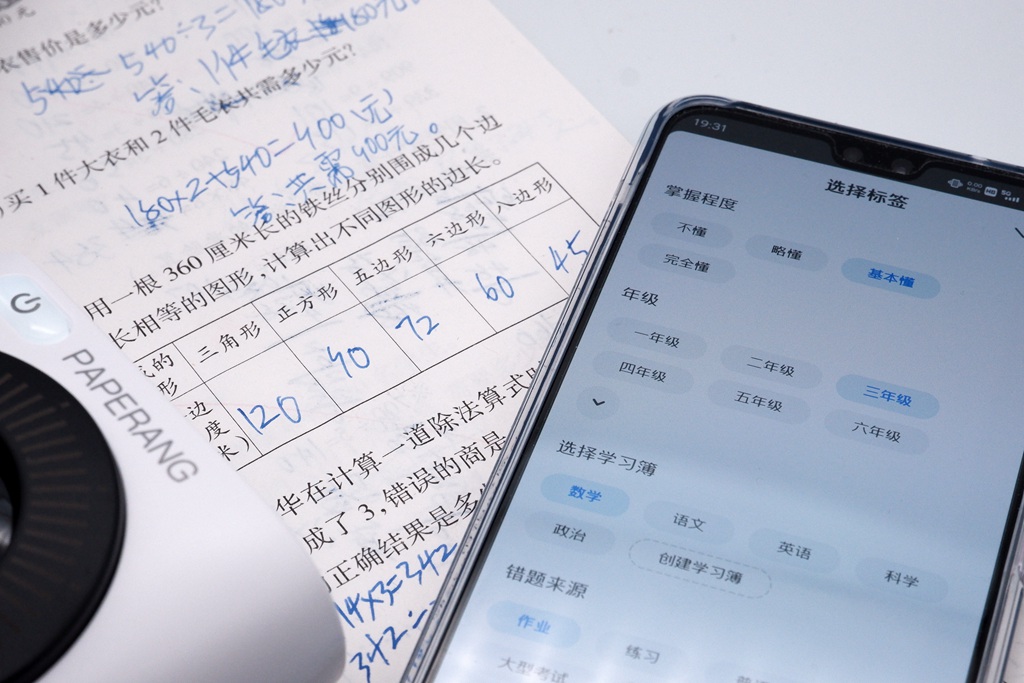 衣售价是多少元?
540÷3=180
答:1件
买1件大衣和2件毛衣共需多少元?
180×2+540=400(元)
答:共需400元。
用一根360厘米长的铁丝分别围成几个边
长相等的图形,计算出不同图形的边长。
三角形 正方形 五边形 六边形 八边形
120 90 72 60 45
华在计算一道除法算式时
成了3,错误的商是
正确结果是多
114×3=342
342÷
PAPERANG
19:31
选择标签
掌握程度
不懂 略懂 基本懂
完全懂
年级
一年级 二年级 三年级
四年级 五年级 六年级
选择学习簿
数学 语文 英语 科学
政治 创建学习簿
错题来源
作业 练习
大型考试